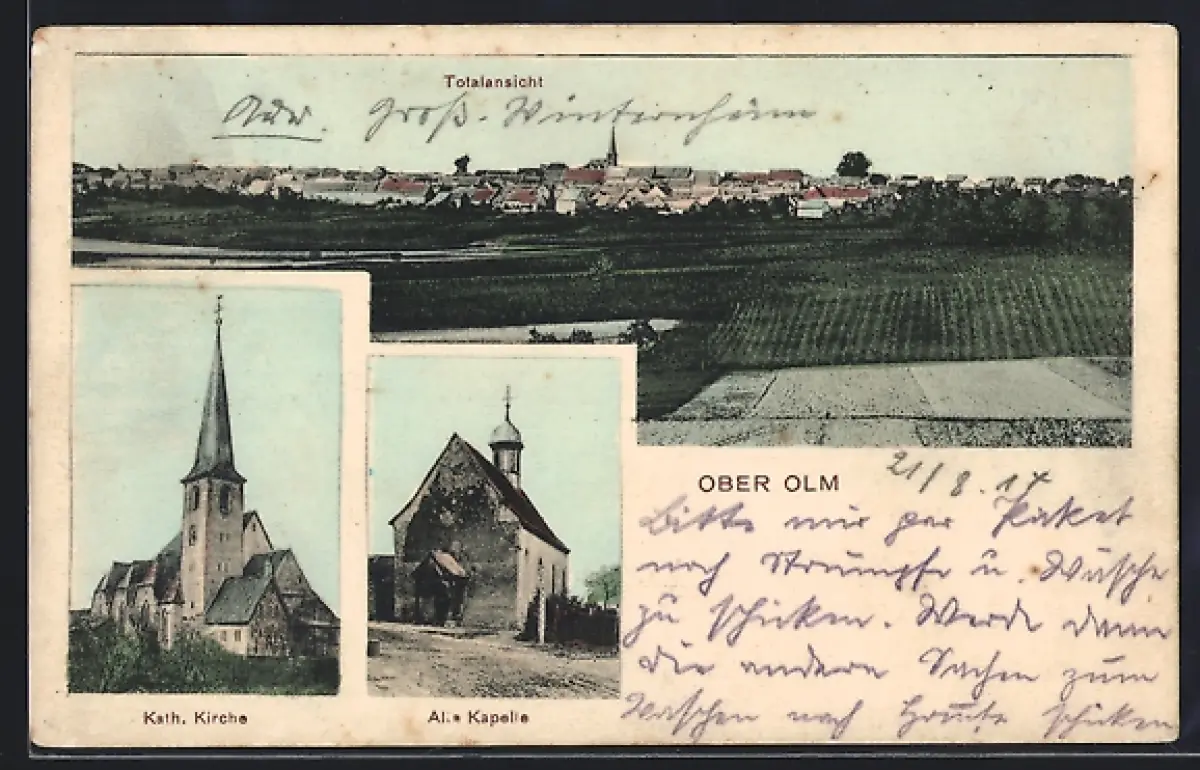 Totalansicht
Adr. Groß-Winternheim
OBER OLM
21/8.14
Bitte mir per Paket
noch Strümpfe u. Wäsche
zu schicken. Werde dann
die andern Sachen zum
Waschen nach Hause schicken
Kath. Kirche
Alte Kapelle